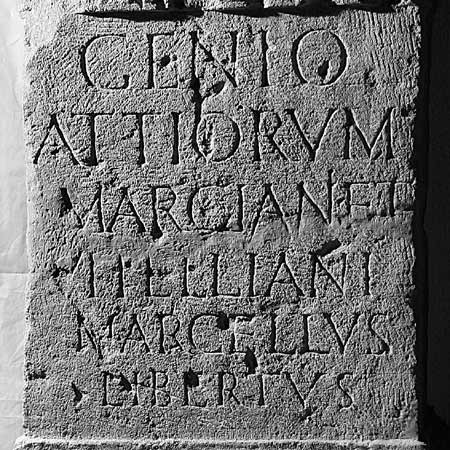 GENIO
ATTIORVM
MARCIAN ET
ITELLIANI
MARCELLVS
LIBERTVS